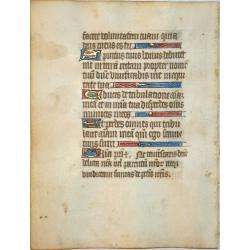 facere voluntatem tuam quia
deus meus es tu
Spiritus tuus bonus deducet
me in terra rectam propter nomen
tuum dne vivificabis me in equi
tate tua
Educes de tribulatione aīam
meā et in mīa tua disperdes oīs
inimicos meos
Et perdes omnes qui tribu
lant aīam meā qm ego servus
tuus sum
Ne reminiscaris dne
delicta nrā vel parentū nrōr neqz
vindictam sumas de peccis nrīs